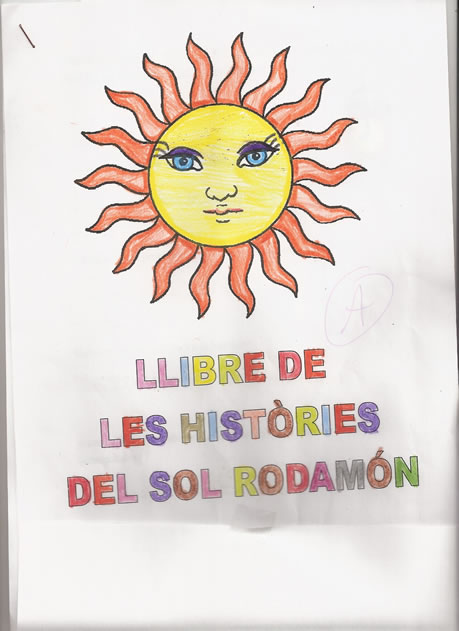 A
LLIBRE DE
LES HISTÒRIES
DEL SOL RODAMÓN